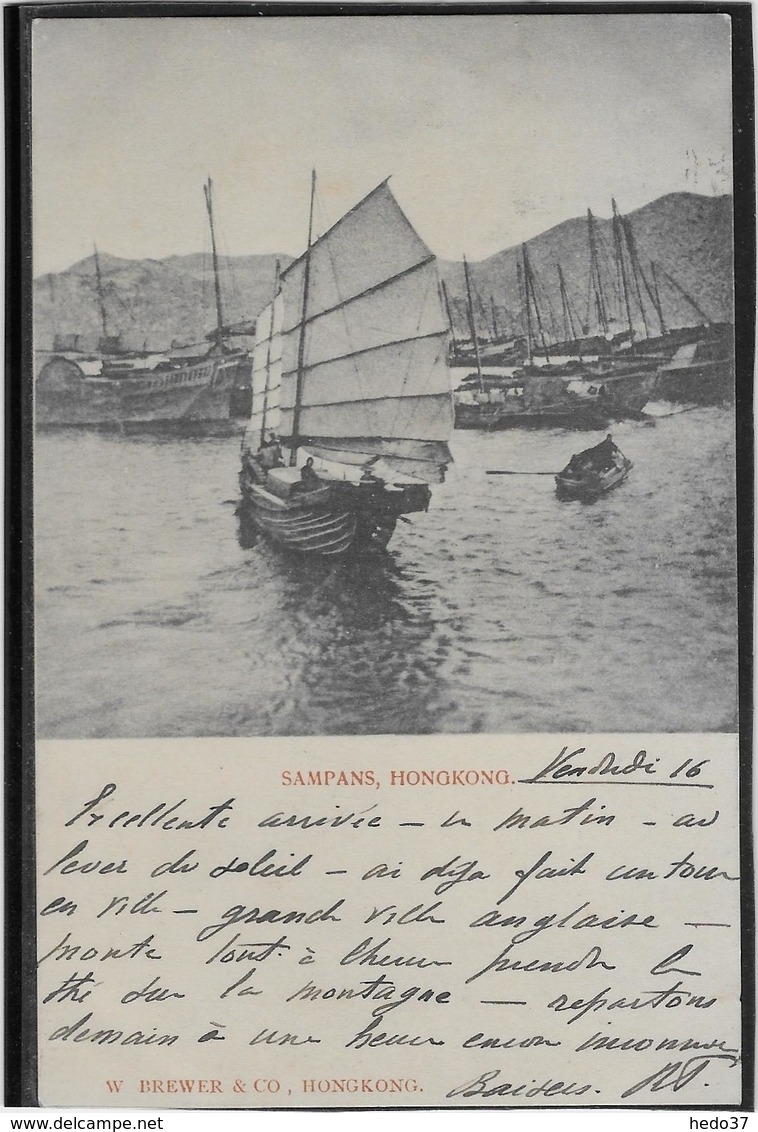 SAMPANS, HONGKONG. Vendredi 16
Excellente arrivée – ce matin – au
lever du soleil – ai déja fait un tour
en ville – grande ville anglaise –
monte tout à l'heure prendre le
thé sur la montagne – repartons
demain à une heure encore inconnue
W BREWER & CO, HONGKONG. Baisers.
delcampe.net
hedo37